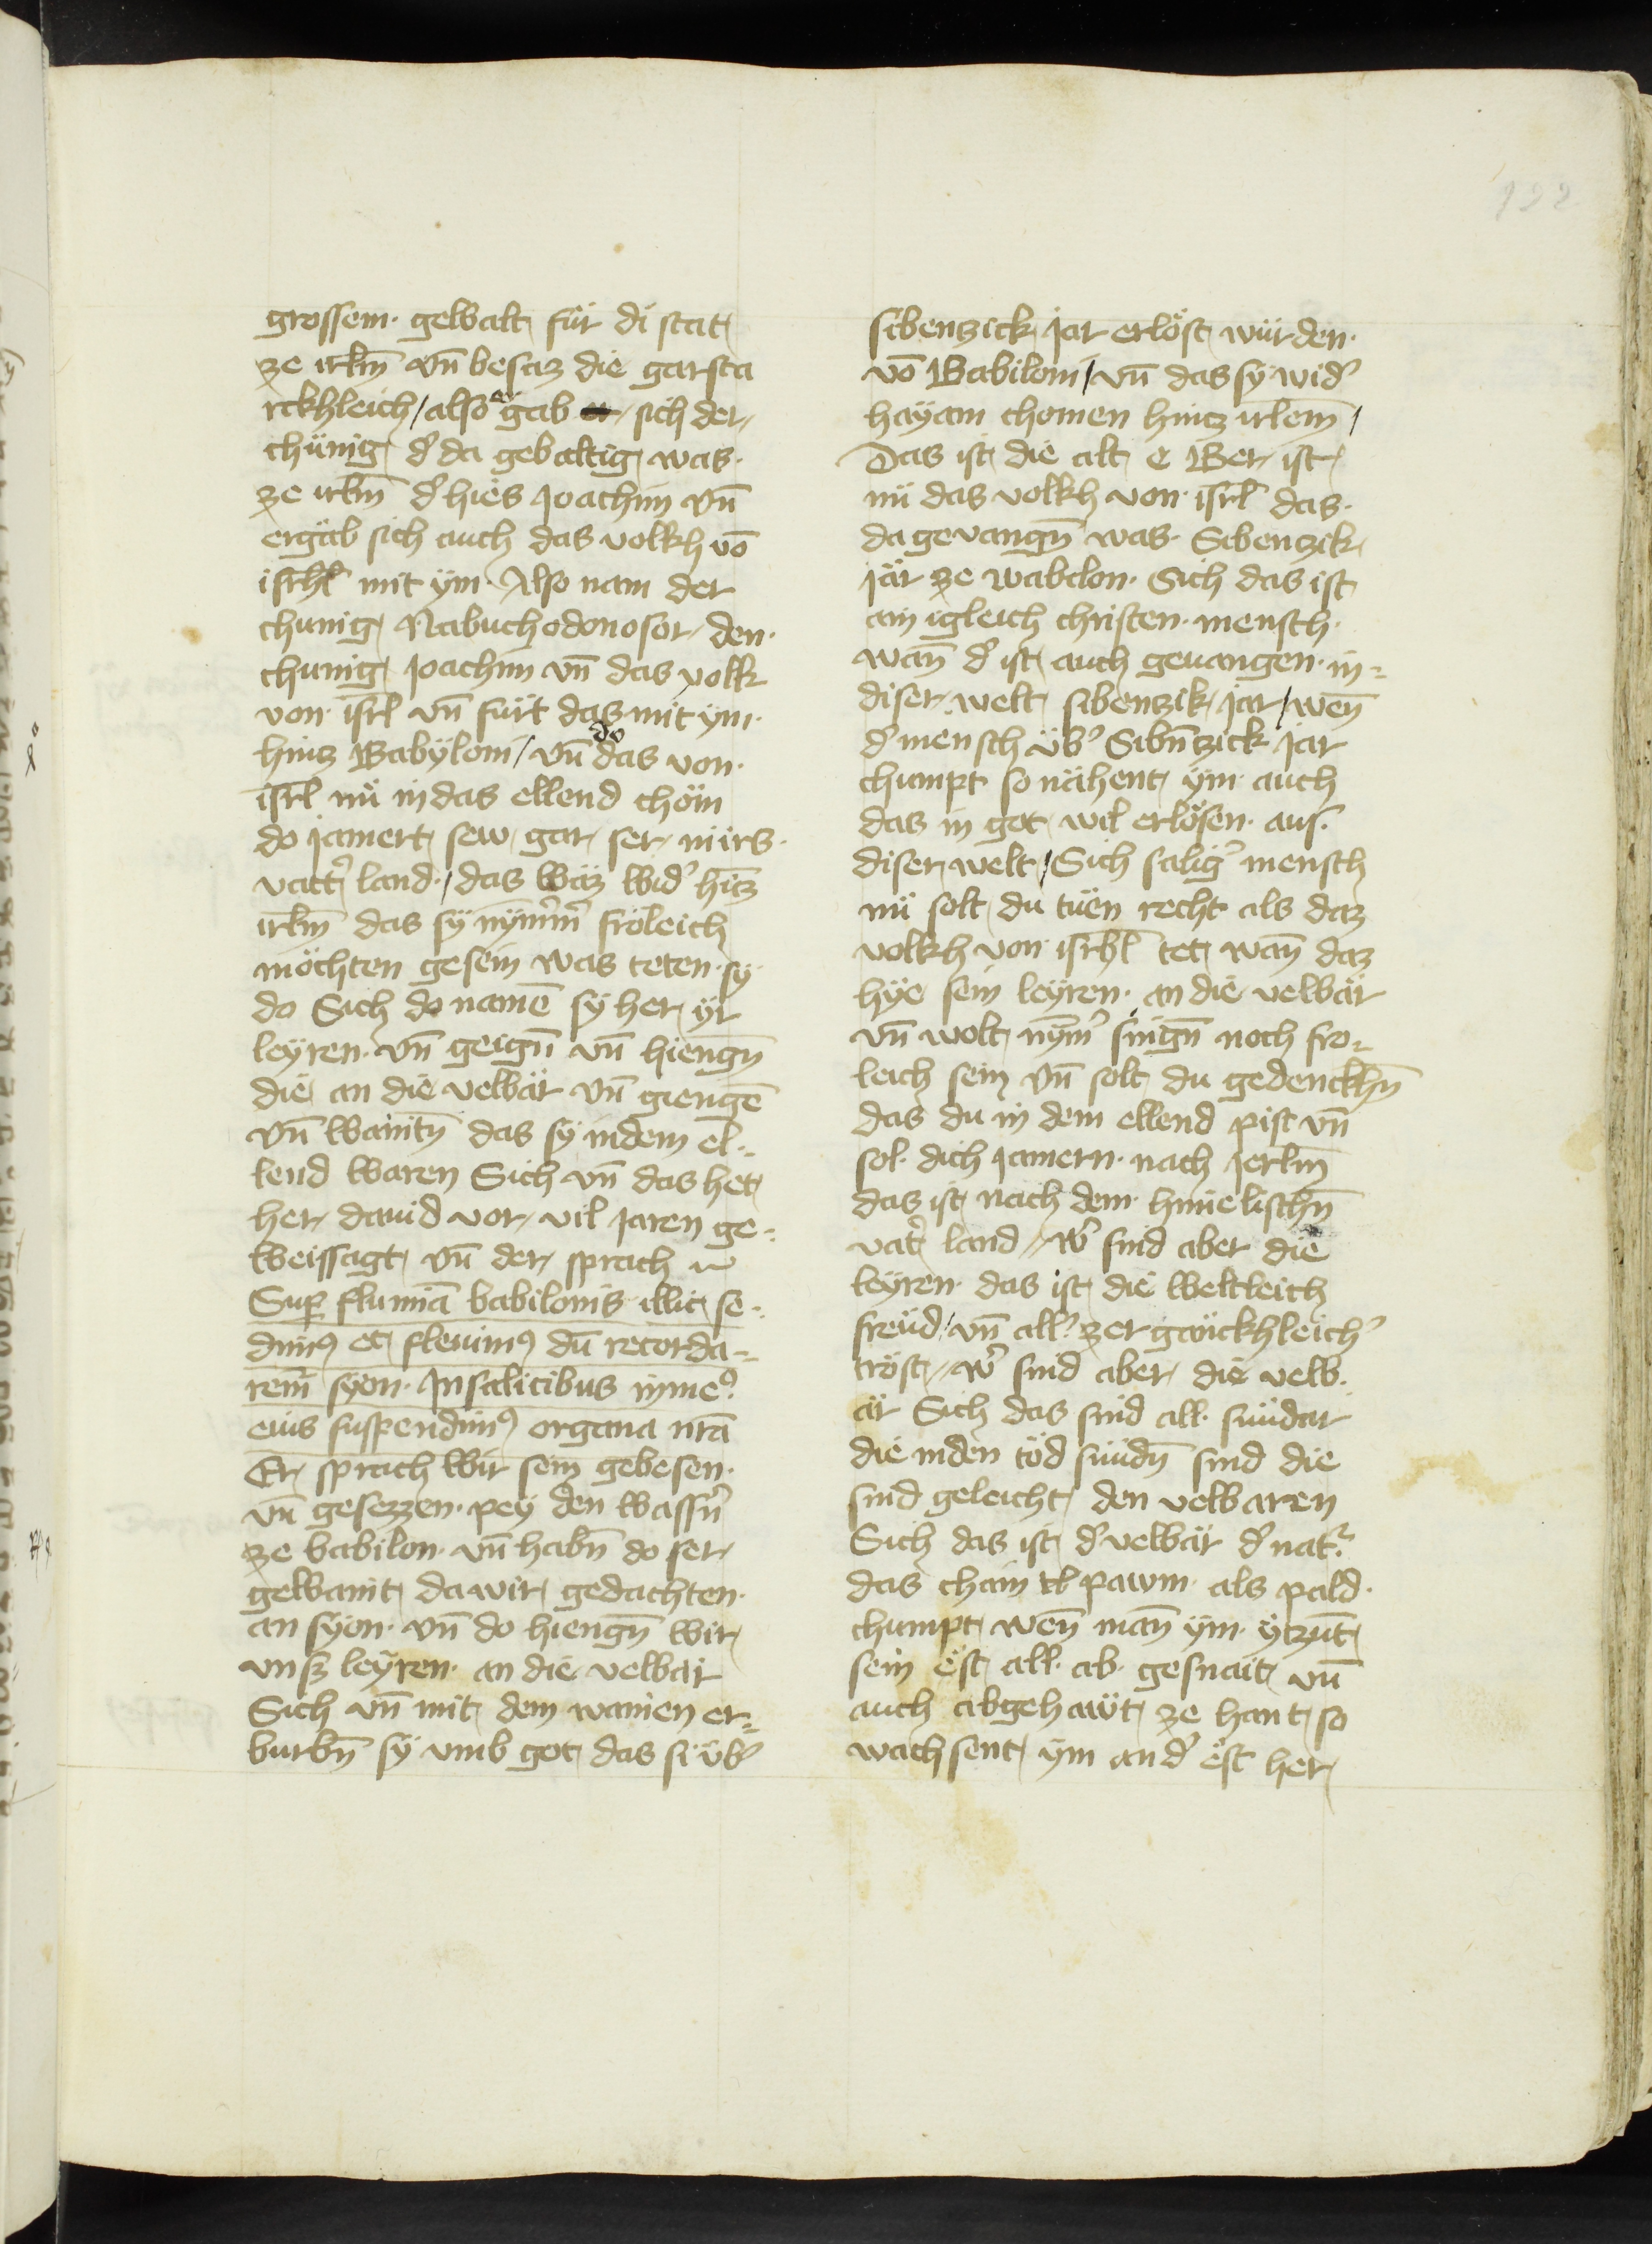 122
grossem· gewalt für di stat
ze irlm̄ vn̄ besaz die gar sta
rckhleich / also gab er sich der
chünig d' da gebaltig was·
ze irlm̄ d' hies Joachim vn̄
ergäb sich auch das volkh vō
isrhl̄ mit ÿm· Also nam der
chunig Nabuchodonosor den·
chunig Joachim vn̄ das volk
von· isrl̄ vn̄ fürt das mit ÿm·
hincz Babÿloni / vn̄ do das von·
isrl̄ nü in das ellend chöm
do jamert sew gar ser nürs·
vatt'̄ land· / das waz wid' hīcz
irlm̄ das sÿ nÿm'm' fröleich
möchten gesein was teten· sÿ
do Sich do namē sÿ her ÿr
leÿren· vn̄ geign̄ vn̄ hiengn̄
die an die velbär vn̄ giengē
vn̄ waintn̄ das sÿ in dem el-
lend waren Sich vn̄ das het
her dauid vor vil jaren ge-
weissagt vn̄ der sprach
Sup̲ flumīa babilonis illic se-
dim9 et fleuim9 dū recorda-
rem̄ sÿon· In salicibus in me9
eius suspendim9 organa nr̄a
Er sprach wir sein gebesen·
vn̄ gesezzen· peÿ den wassn̄'
ze babilon· vn̄ habn̄ do ser
gewaint da wir gedachten·
an sÿon· vn̄ do hiengn̄ wir
vnsz leÿren· an die velbär
Sich vn̄ mit dem wainen er-
burbn̄ sÿ vmb got das si üb'
sibenzick Jar erlöst würden·
vō Babiloni / vn̄ das sÿ wid'
haÿam chomen hincz irlem̄ /
Das ist die alt e Wer ist
nü das volkh von· isrl̄ das·
da gevangn̄ was· Sibenzik
Jär ze wabelon· Sich das ist
ain igleich christen· mensch·
wan̄ d' ist auch geuangen· in-
diser welt sibenzik jar / wen̄
d' mensch üb' Sibn̄zick Jar
chumpt so nähent ÿm· auch
das in got wil erlösen· aus·
diser welt / Sich sälig' mensch
nü solt du tuen recht als daz
volkh von· isrhl̄ tet wan̄ daz
hÿe sein leÿren· an die velbär
vn̄ wolt nÿm̄' singn̄ noch fro-
leich sein vn̄ solt du gedenckhn̄
das du in dem ellend pist vn̄
sol· dich jamern· nach Jerlm̄
das ist nach dem· himelischn̄
vat'̄ land // w' sind aber die
leÿren· das ist die weltleich
freüd / vn̄ all' zergäückhleich'
tröst // w' sind aber die velb·
är Sich das sind all· sündar
die in den töd sündn̄ sind die
sind geleicht den velbaren
Sich das ist d' velbär d' nat'
das chain pawm· als pald·
chumpt wen̄ man̄ ÿm· ÿtzūt
sein ëst all· ab· gesnait vn̄
auch abgehawt ze hant so
wachsent ÿm and' ëst her